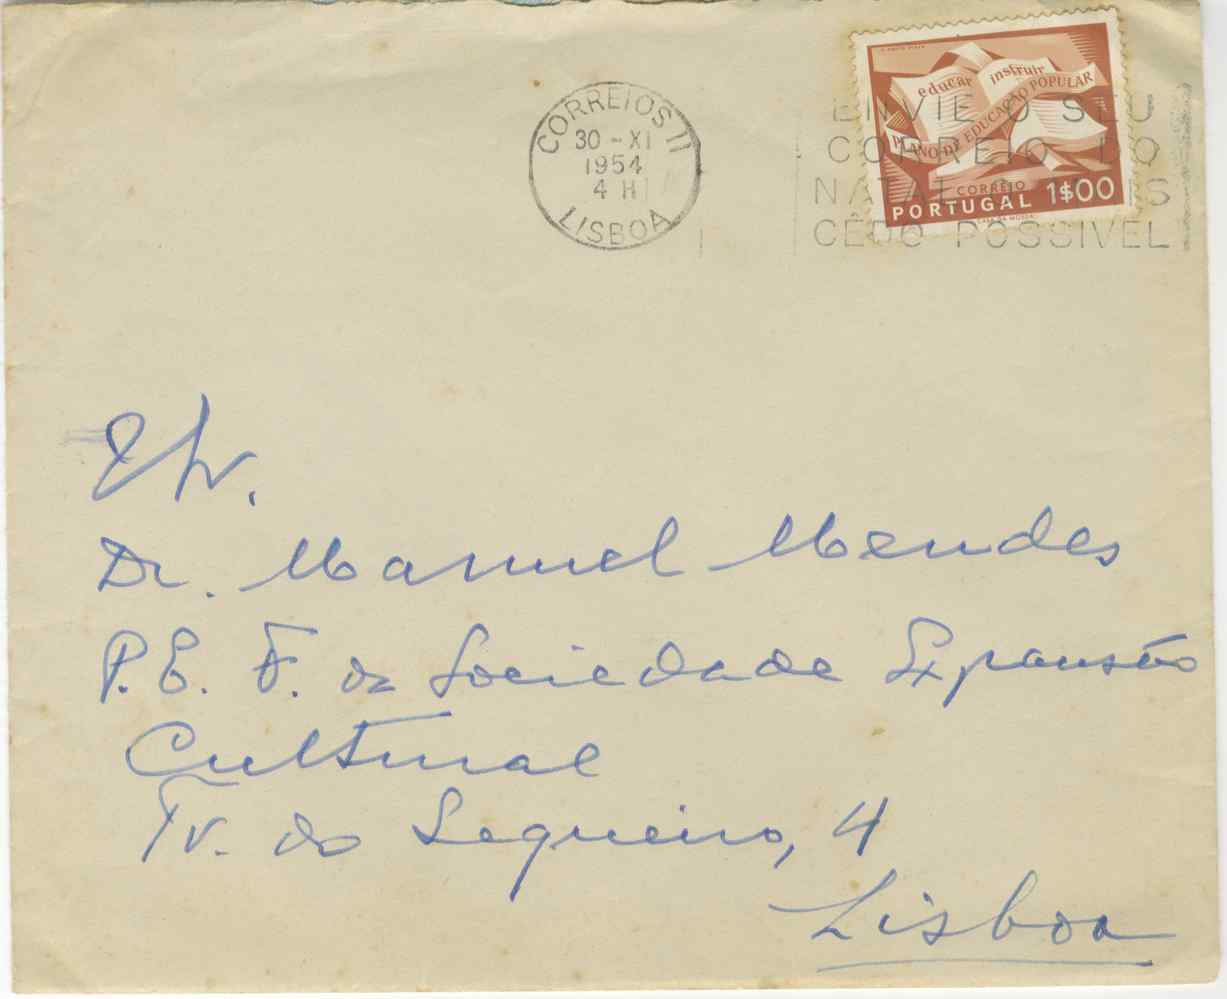 CORREIOS 11
30-XI
1954
4 H
LISBOA
educar instruir
PLANO DE EDUCAÇÃO POPULAR
CORREIO
PORTUGAL 1$00
CASA DA MOEDA
ENVIE O SEU
CORREIO DO
NATAL O MAIS
CÊDO POSSIVEL
Dr. Manuel Mendes
P.E.F. da Sociedade Expansão
Cultural
Tv. do Sequeiro, 4
Lisboa